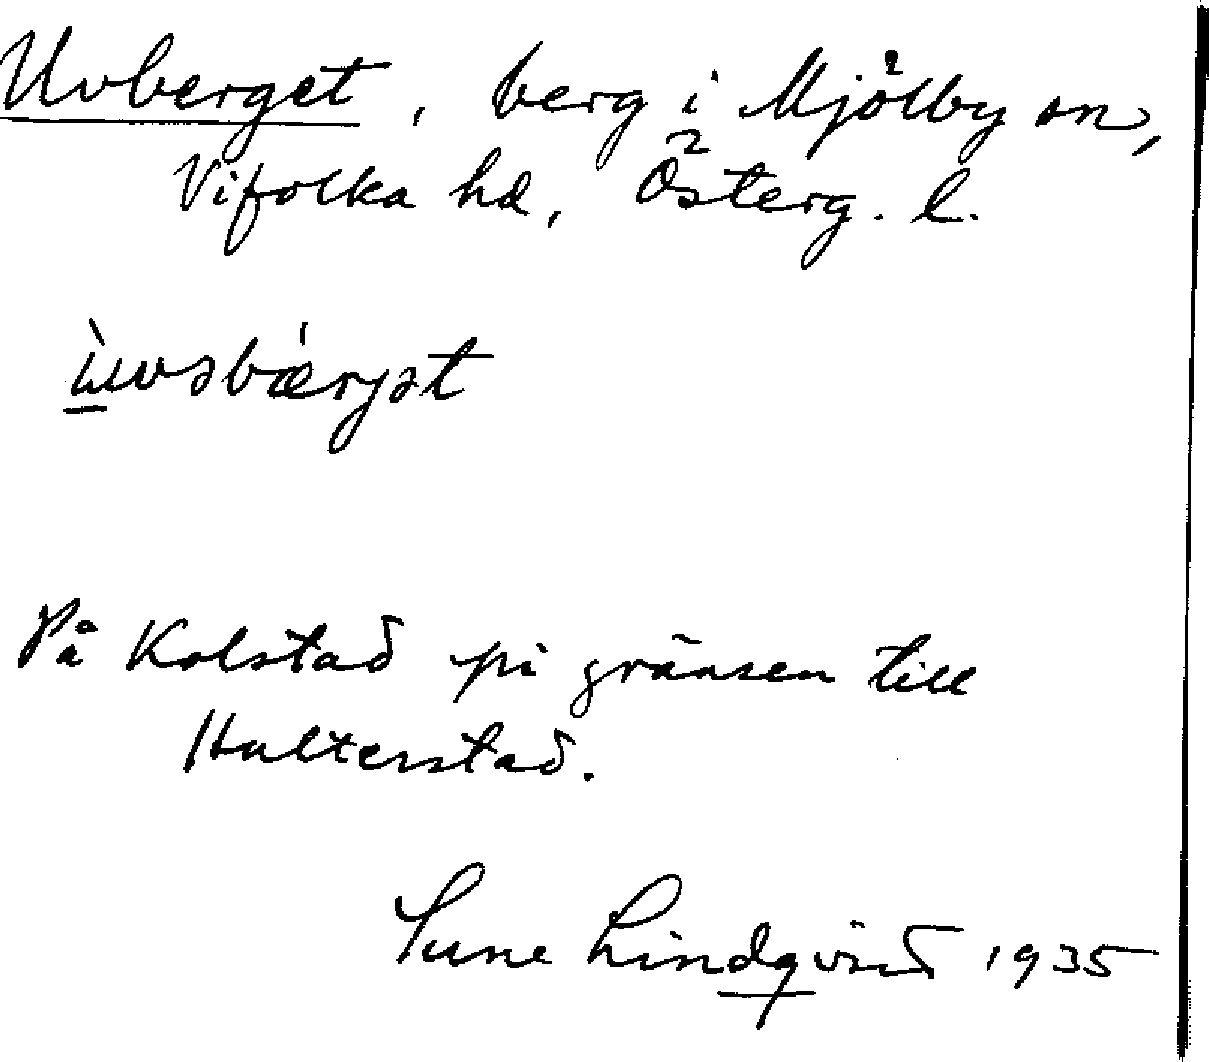 Uvberget, berg i Mjölby sn,
Vifolka hd, Österg. l.
ɯ̀vsbǽrjət
På Kolstad på gränsen till
Hulterstad.
Sune Lindqvist 1935